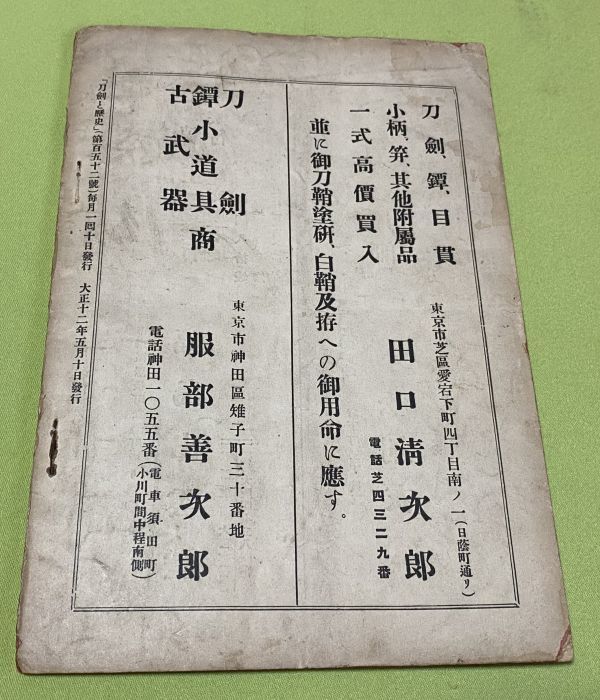 刀劍、鐔、目貫
小柄、笄、其他附屬品
一式高價買入
東京市芝區愛宕下町四丁目南ノ一(日蔭町通リ)
田口淸次郎
電話芝四三二九番
並に御刀鞘塗硏、白鞘及拵への御用命に應ず。
刀劍
鐔小道具商
古武器
東京市神田區雉子町三十番地
服部善次郎
電話神田一〇五五番(電車須田町小川町間中程南側)
「刀劍と歷史」(第百五十二號)每月一回十日發行 大正十二年五月十日發行